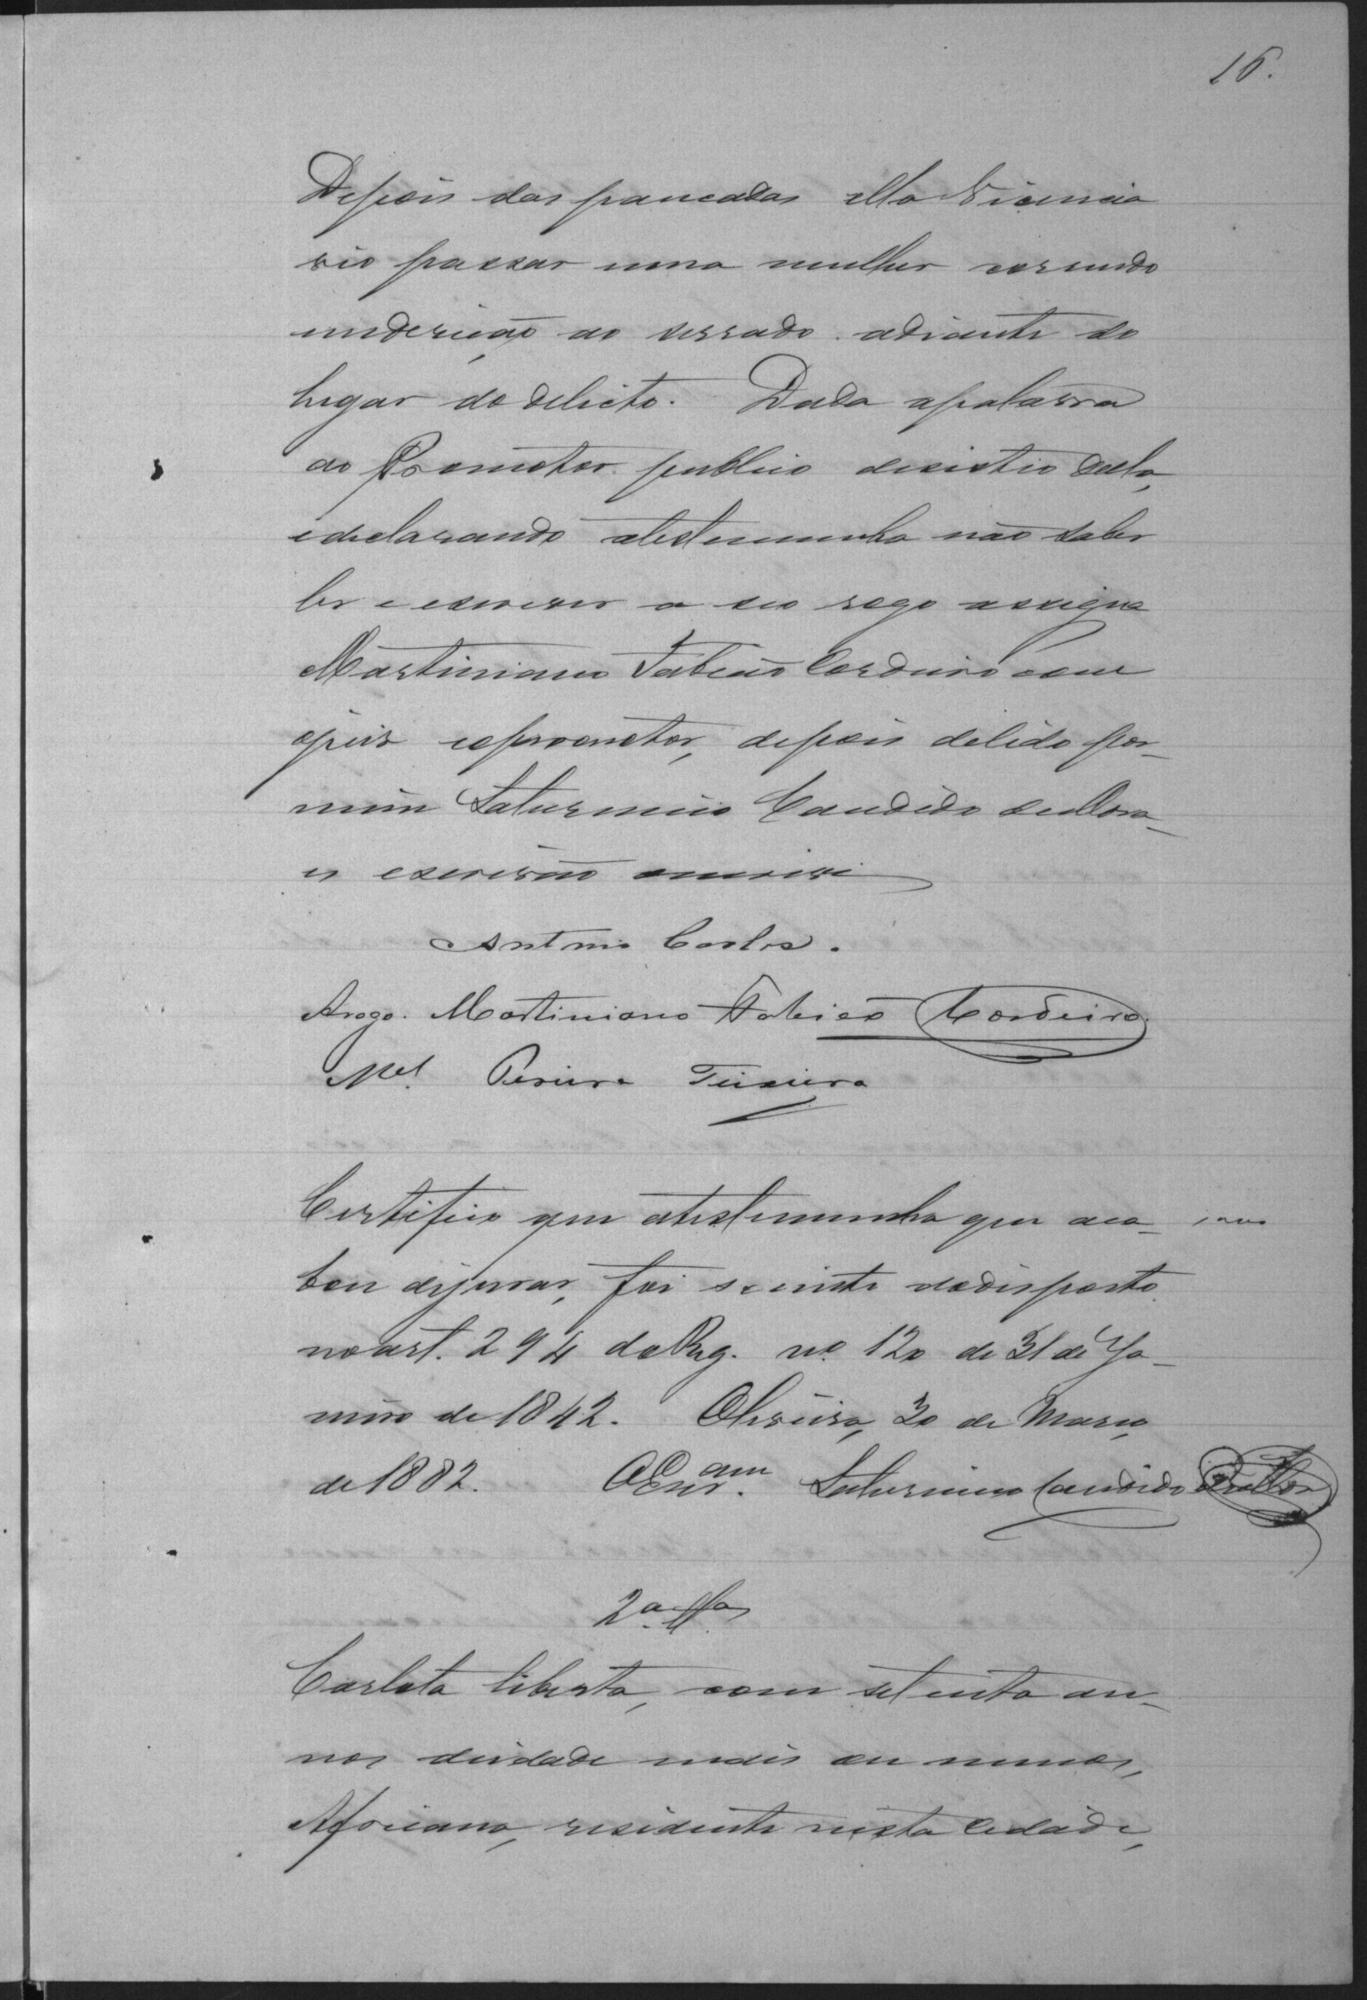 16.
Depois das pancadas ella Vicencia
vio passar uma mulher correndo
endereição ao serrado adiante do
lugar do delicto. Dada apalavra
ao Promotor publico desistio della,
edeclarando atestemunha não saber
ler e escrever a seo rogo assigna
Martiniano Fabião Cordeiro com
ojuis eopromotor, depois delido por
mim Saturnino Candido
escrivão
Antonio Carlos.
Arogo. Martiniano Fabião Cordeiro.
Mel. Pereira Teixeira
Certifico que atestemunha que aca-
bou dejurar, foi sciente dodisposto
noart. 294 do Reg. nº 120 de 31 de Ja-
neiro de 1842. Oliveira, 30 de Março
de 1882. Saturnino Candido
2ª Ta
Carlota liberta, com setenta an-
nos deidade mais ou menos,
Africana, residente nesta Cidade,